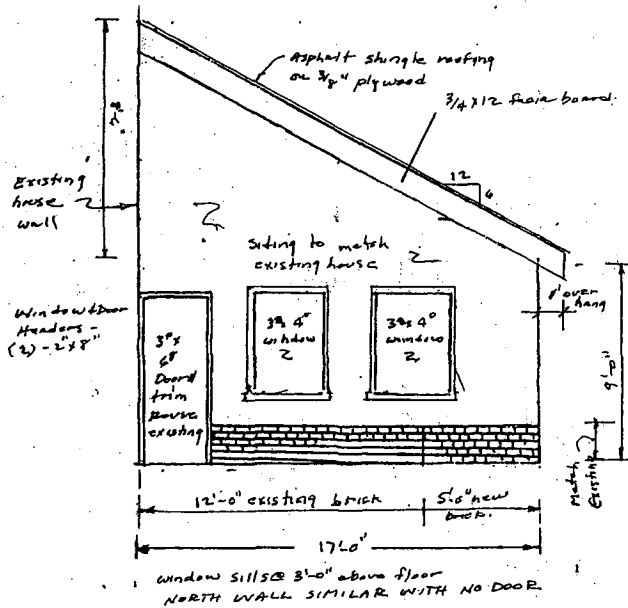 Asphalt shingle roofing
on 3/8" plywood
3/4 x 12 facia board
12
6
Existing
house
wall
Siding to match
existing house
Window & Door
Headers -
(2) - 2"x8"
3⁰ x
6⁸
Door &
trim
existing
3⁰ x 4⁰
window
3⁰ x 4⁰
window
over
hang
9'-0"
Match
Existing
12'-0" existing brick
5'-0" new
brick.
17'-0"
window sills @ 3'-0" above floor
NORTH WALL SIMILAR WITH NO DOOR